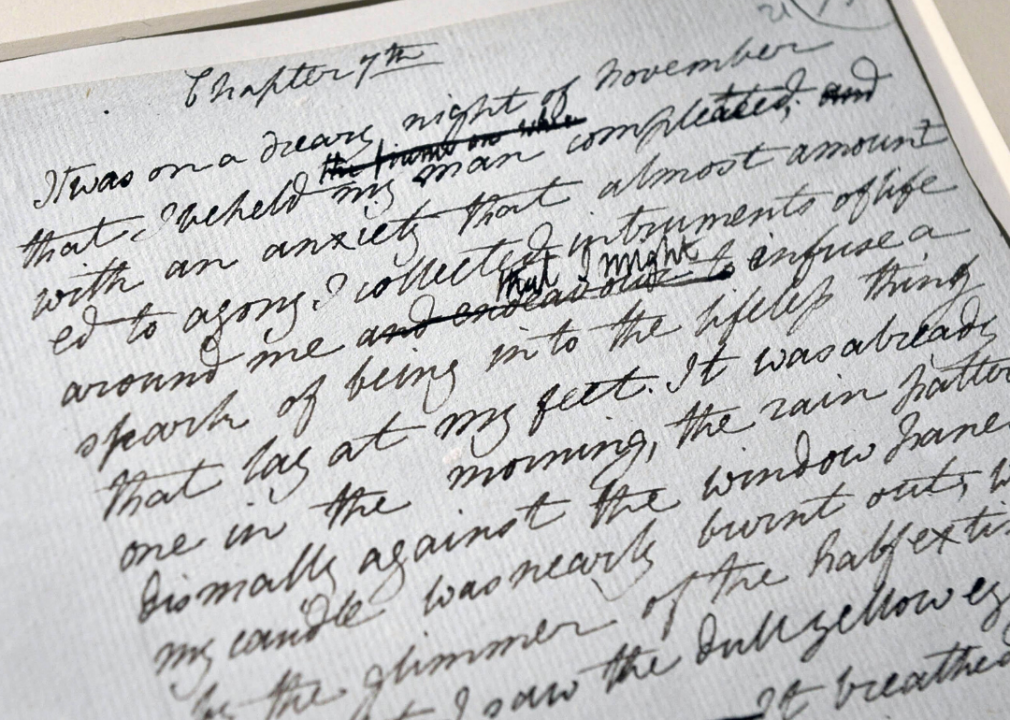 Chapter 7th
It was on a dreary night of November
that I beheld my man compleated; and
with an anxiety that almost amount
ed to agony, I collected intruments of life
that I might
around me and endeavour to infuse a
spark of being into the lifeless thing
that lay at my feet. It was already
one in the morning, the rain patter
dismally against the window panes
my candle was nearly burnt out, w
by the glimmer of the half extin
I saw the dull yellow ey
It breathed